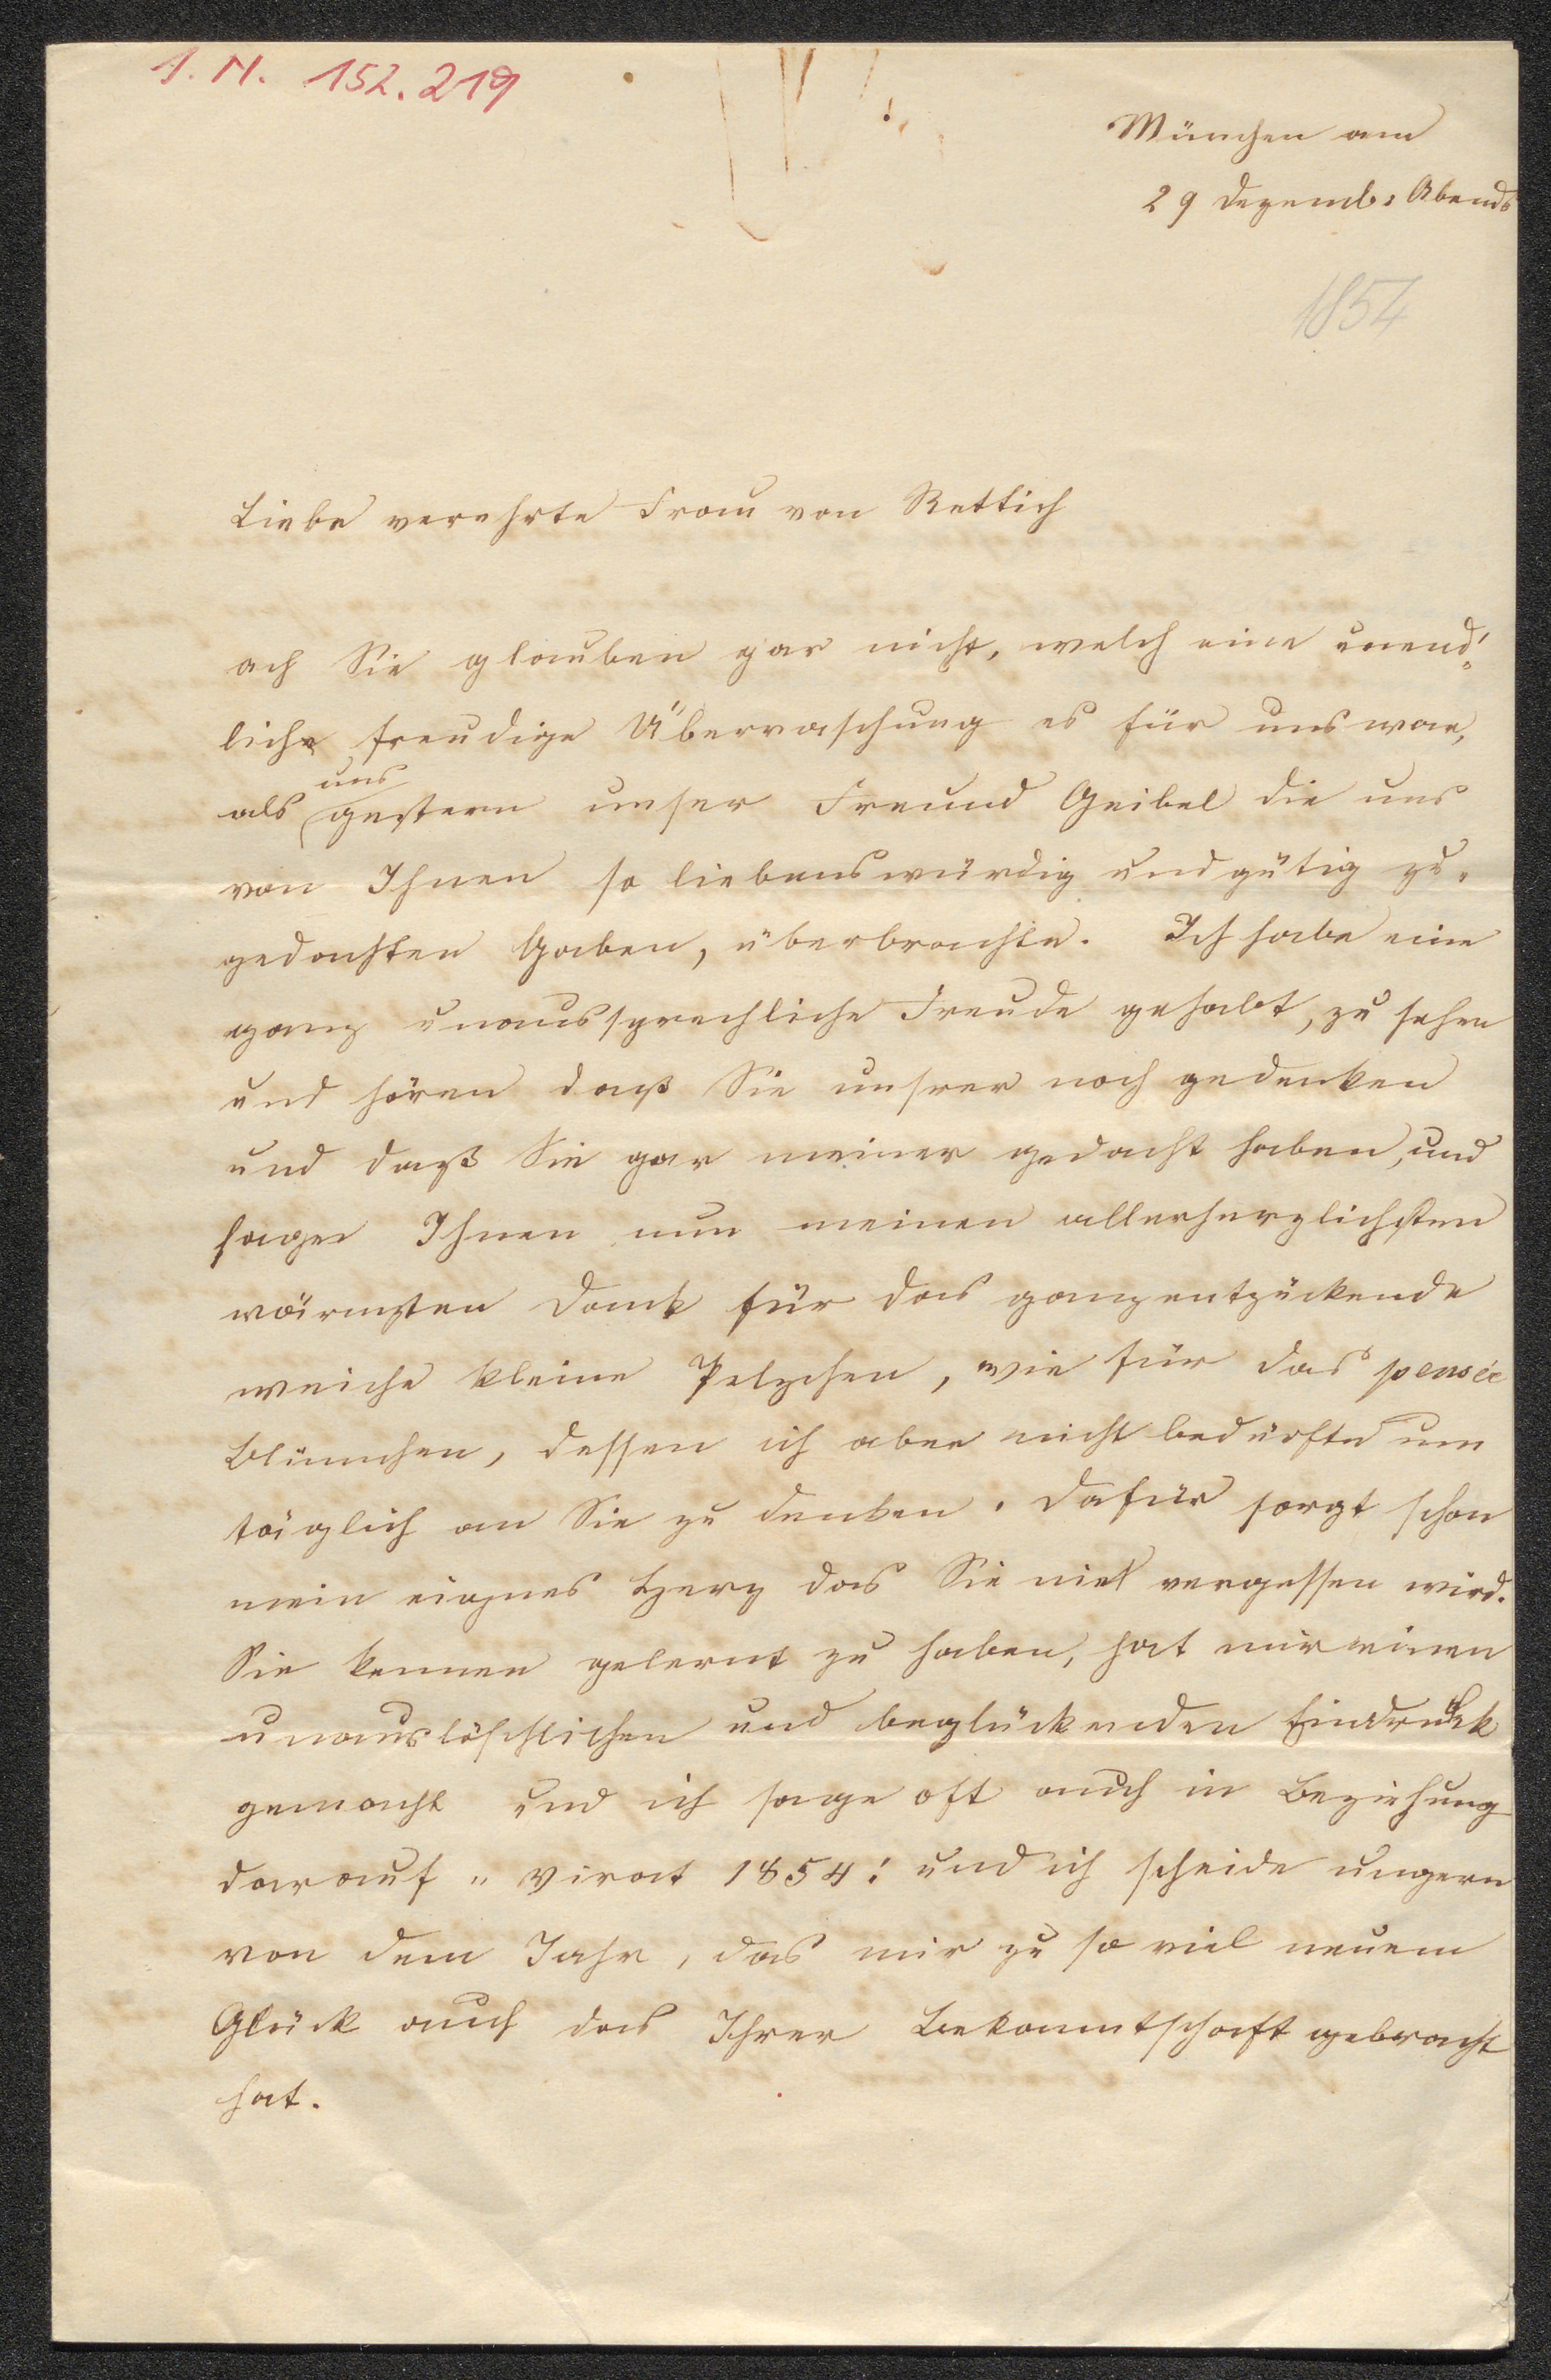 I. N. 152.219
München am
29 Dezemb: Abends
1854
Liebe verehrte Frau von Rettich
ach Sie glauben gar nicht, welch eine unend-
liche freudige Überraschung es für uns war,
uns
als gestern unser Freund Geibel die uns
von Ihnen so liebenswürdig und gütig zu-
gedachten Gaben, überbrachte. Ich habe eine
ganz unaussprechliche Freude gehabt, zu sehen
und hören daß Sie unsrer noch gedenken
und daß Sie gar meiner gedacht haben, und
sage Ihnen nun meinen allerherzlichsten
wärmsten Dank für das ganz entzückende
weiche kleine Pelzchen, wie für das pensée
Blümchen, dessen ich aber nicht bedürfte um
täglich an Sie zu denken. Dafür sorgt schon
mein eignes Herz das Sie nie vergessen wird.
Sie kennen gelernt zu haben, hat mir einen
unauslöschlichen und beglückenden Eindruck
gemacht und ich sage oft auch in Beziehung
darauf „ Vivat 1854! und ich scheide ungern
von dem Jahr, das mir zu so viel neuem
Glück auch das Ihrer Bekanntschaft gebracht
hat.